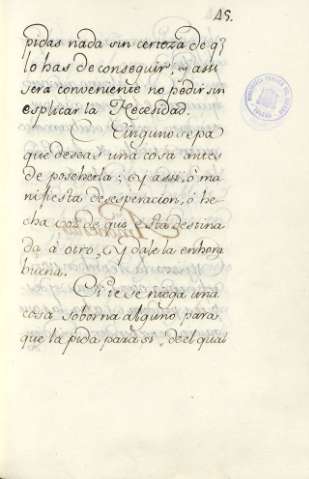 45.
pidas nada sin certeza de q̃
lo has de conseguir; y assi
sera conveniente no pedir sin
esplicar la Necesidad.
Ninguno sepa
que deseas una cosa antes
de poseherla; y assi, ó ma
nifiesta desesperacion, ó he
cha voz de que está destina
da á otro, y dale la enhora
buena.
Si te se niega una
cosa soborna alguno para
que la pida para si, del qual